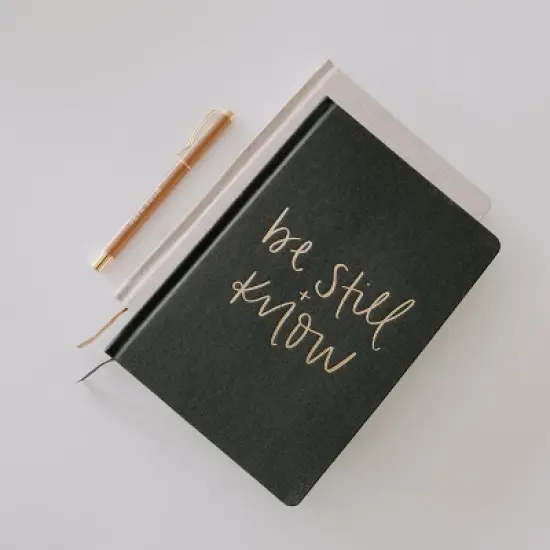 be Still
+
Know